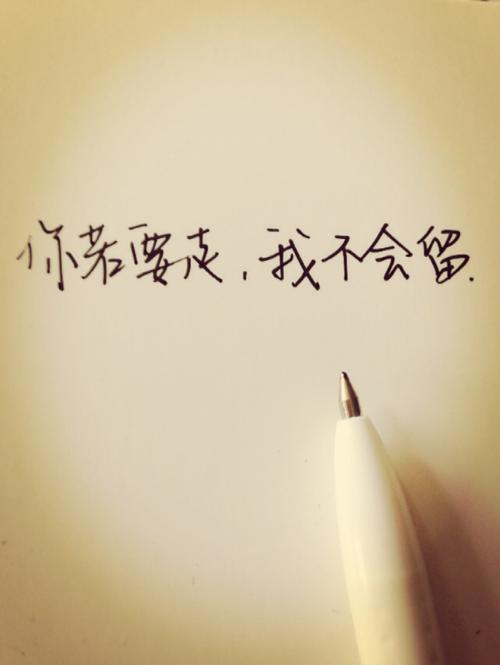 你若要走,我不会留.